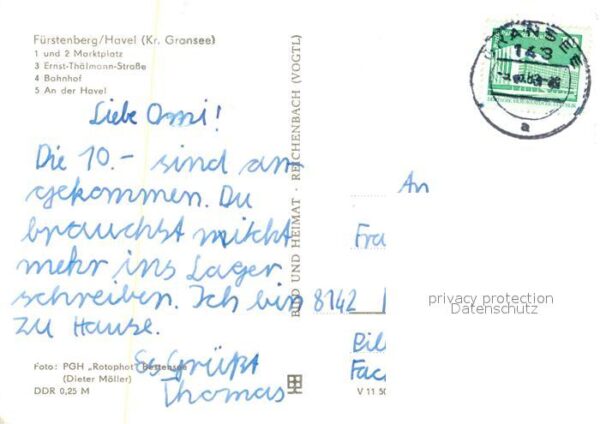 Fürstenberg/Havel (Kr. Gransee)
1 und 2 Marktplatz
3 Ernst-Thälmann-Straße
4 Bahnhof
5 An der Havel
Liebe Omi!
Die 10.- sind an-
gekommen. Du
brauchst micht
mehr ins Lager
schreiben. Ich bin
zu Hause.
Es Grüßt
Thomas
Foto: PGH „Rotophot" Bestensee
(Dieter Möller)
DDR 0,25 M
BILD UND HEIMAT · REICHENBACH (VOGTL)
V 11 50
GRANSEE
143
a
An
Fra
8142
privacy protection
Datenschutz